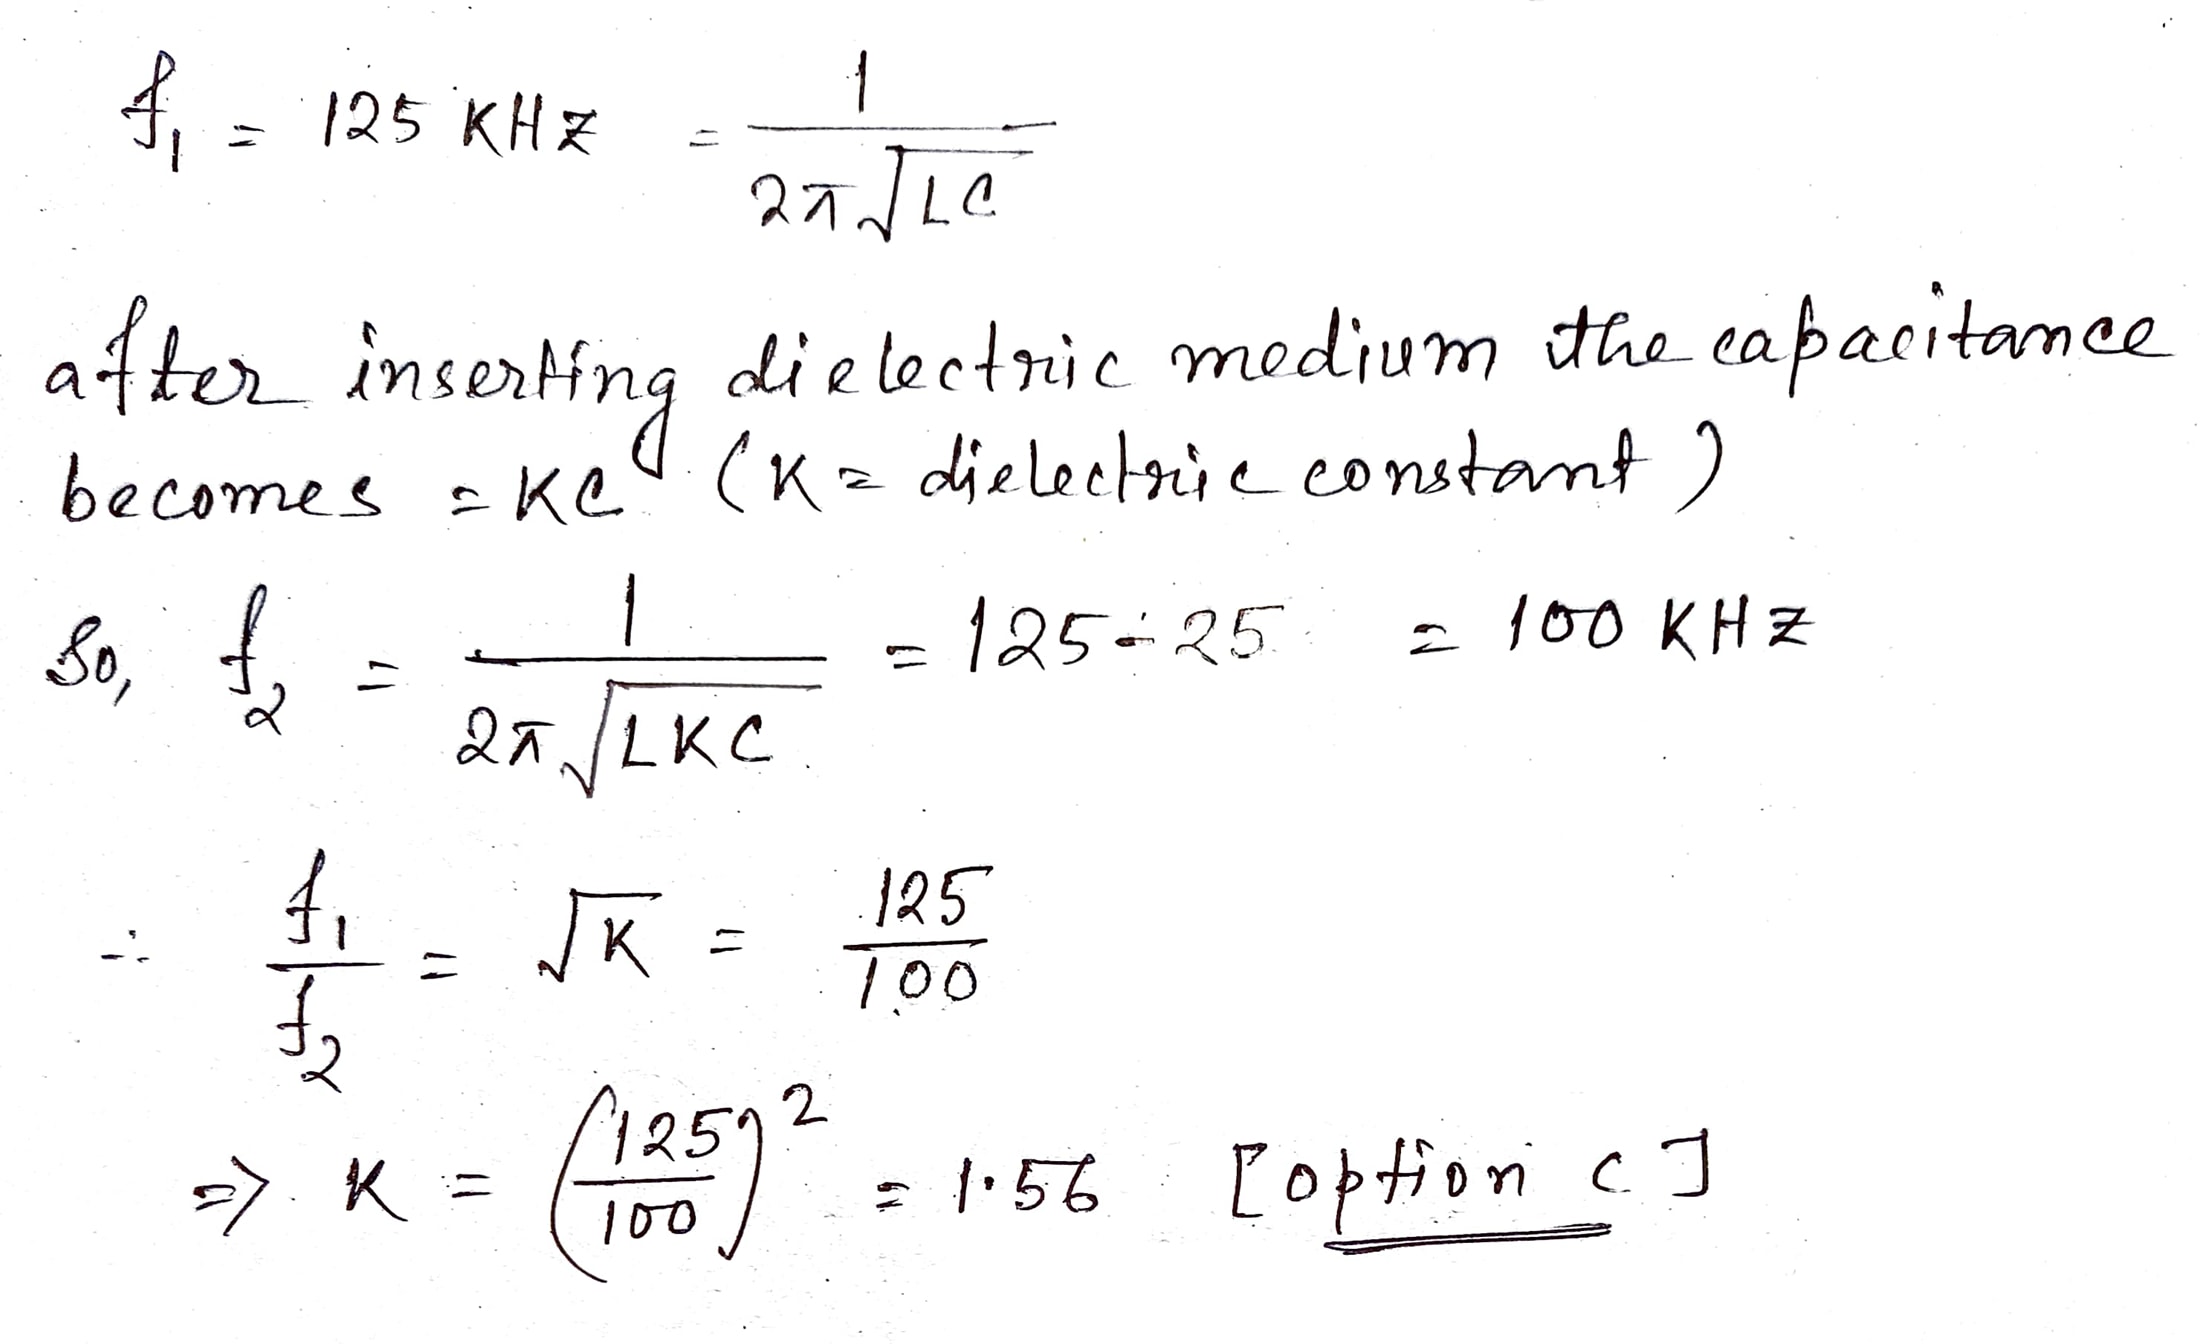 f₁ = 125 KHZ = 1/(2π√LC)
after inserting dielectric medium the capacitance
becomes = KC (K = dielectric constant)
So, f₂ = 1/(2π√LKC) = 125-25 = 100 KHZ
∴ f₁/f₂ = √K = 125/100
⇒ K = (125/100)² = 1.56 [option c]